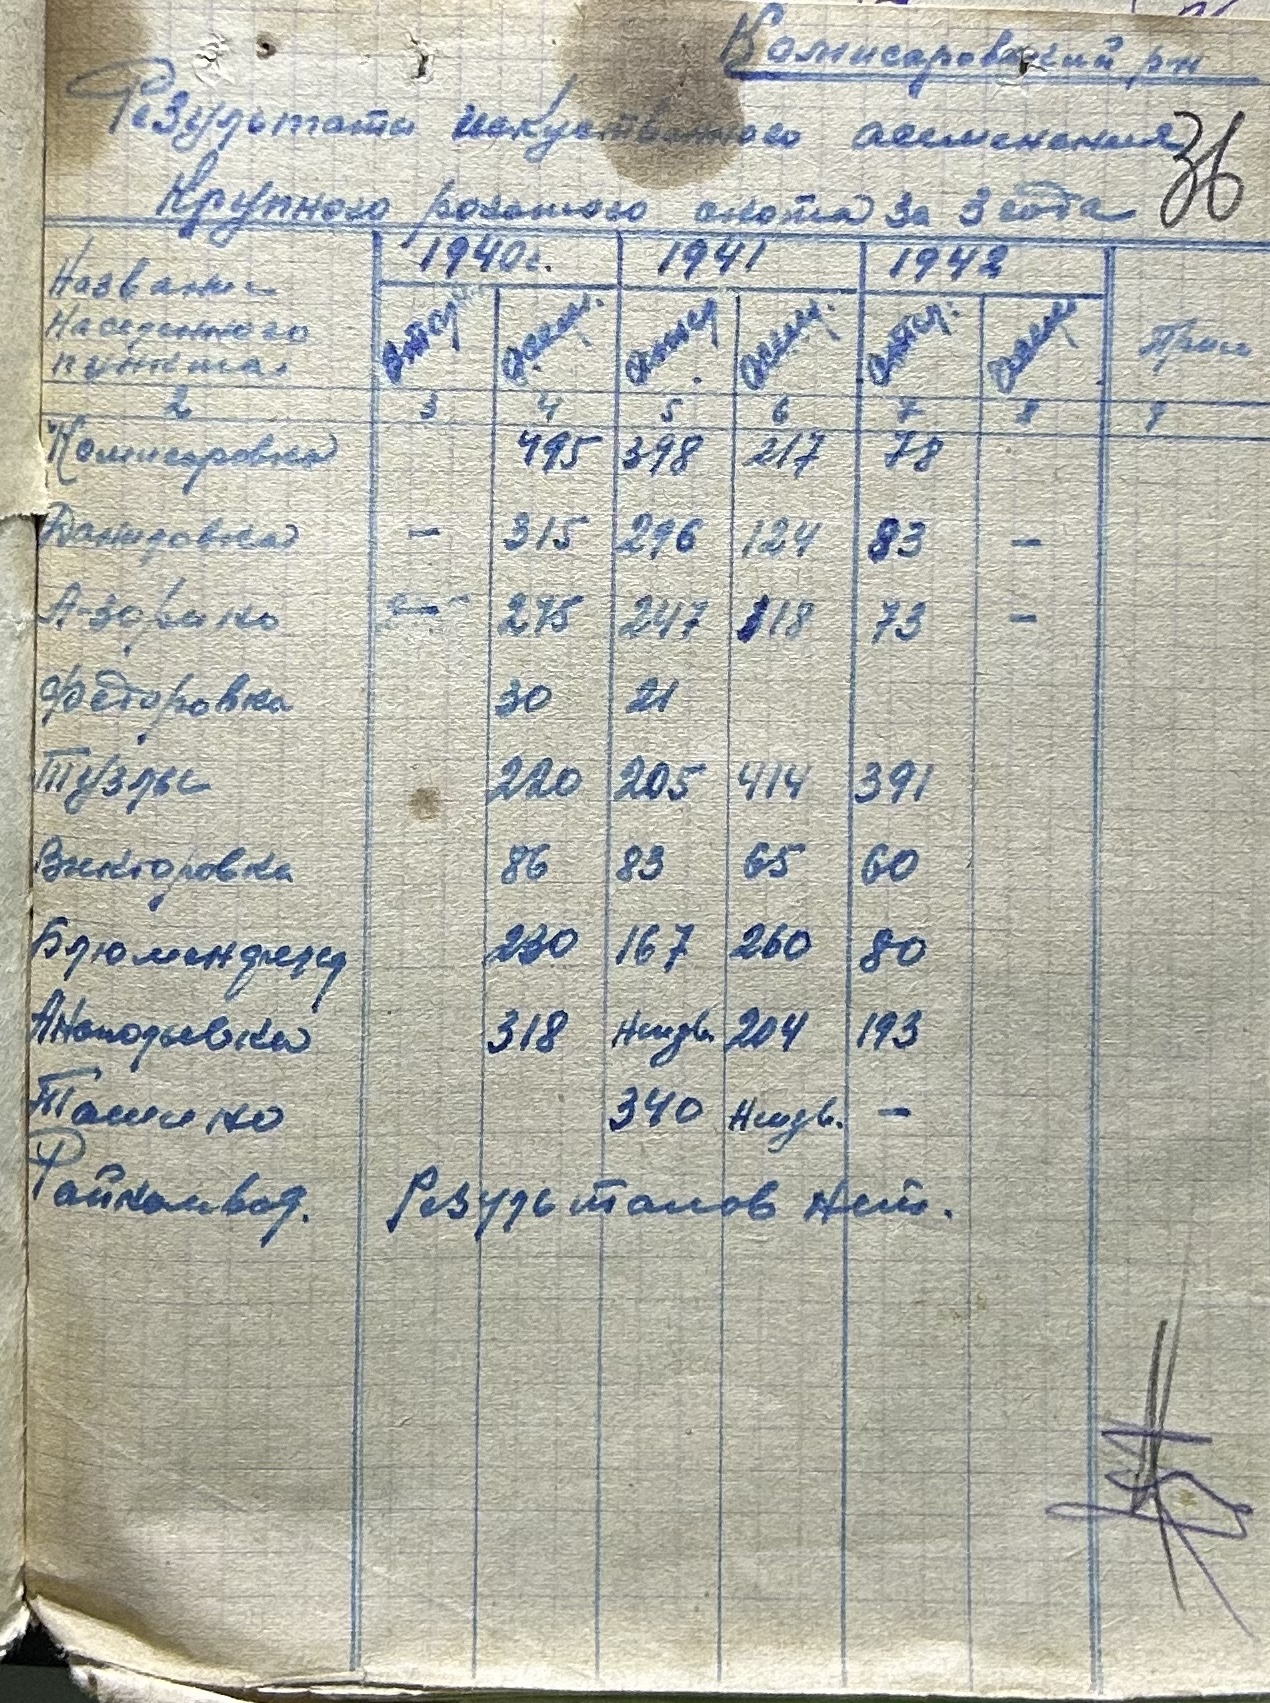 Комисаровский рн
Результати искуственного асеменения
Крупного рогатого скота за 3 года
36
Название населенного пункта 1940г. 1941 1942 Прим
Отел. Осем. Отел. Осем. Отел. Осем.
2 3 4 5 6 7 8 9
Комисаровка 495 398 217 78
Даниловка — 315 296 124 83 —
А-зорино — 275 247 118 73 —
Федоровка 30 21
Тузлы 220 205 414 391
Викторовка 86 83 65 60
Блюменфельд 230 167 260 80
Анатольевка 318 Неизв. 204 193
Ташино 340 Неизв. —
Райкомвод. Результатов нет.